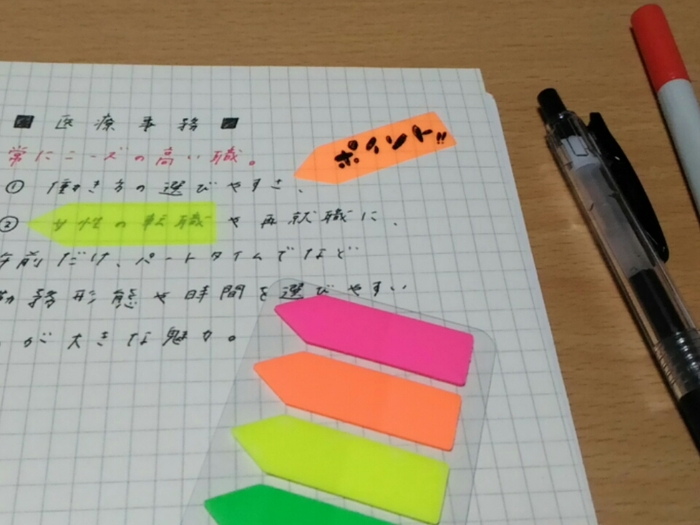 ■ 医療事務 ■
ポイント!!
常にニーズの高い職。
① 働き方の選びやすさ、
② 女性の転職や再就職に、
午前だけ、パートタイムでなど
勤務形態や時間を選びやすい
が大きな魅力。